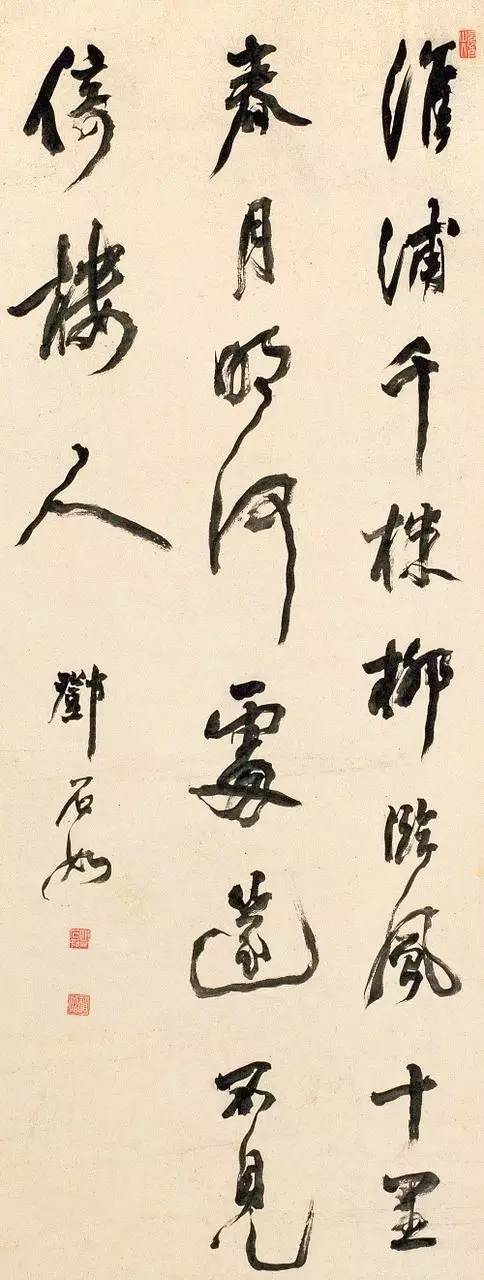 淮浦千株柳臨風十里
春月明何處篴不見
倚樓人
鄧石如